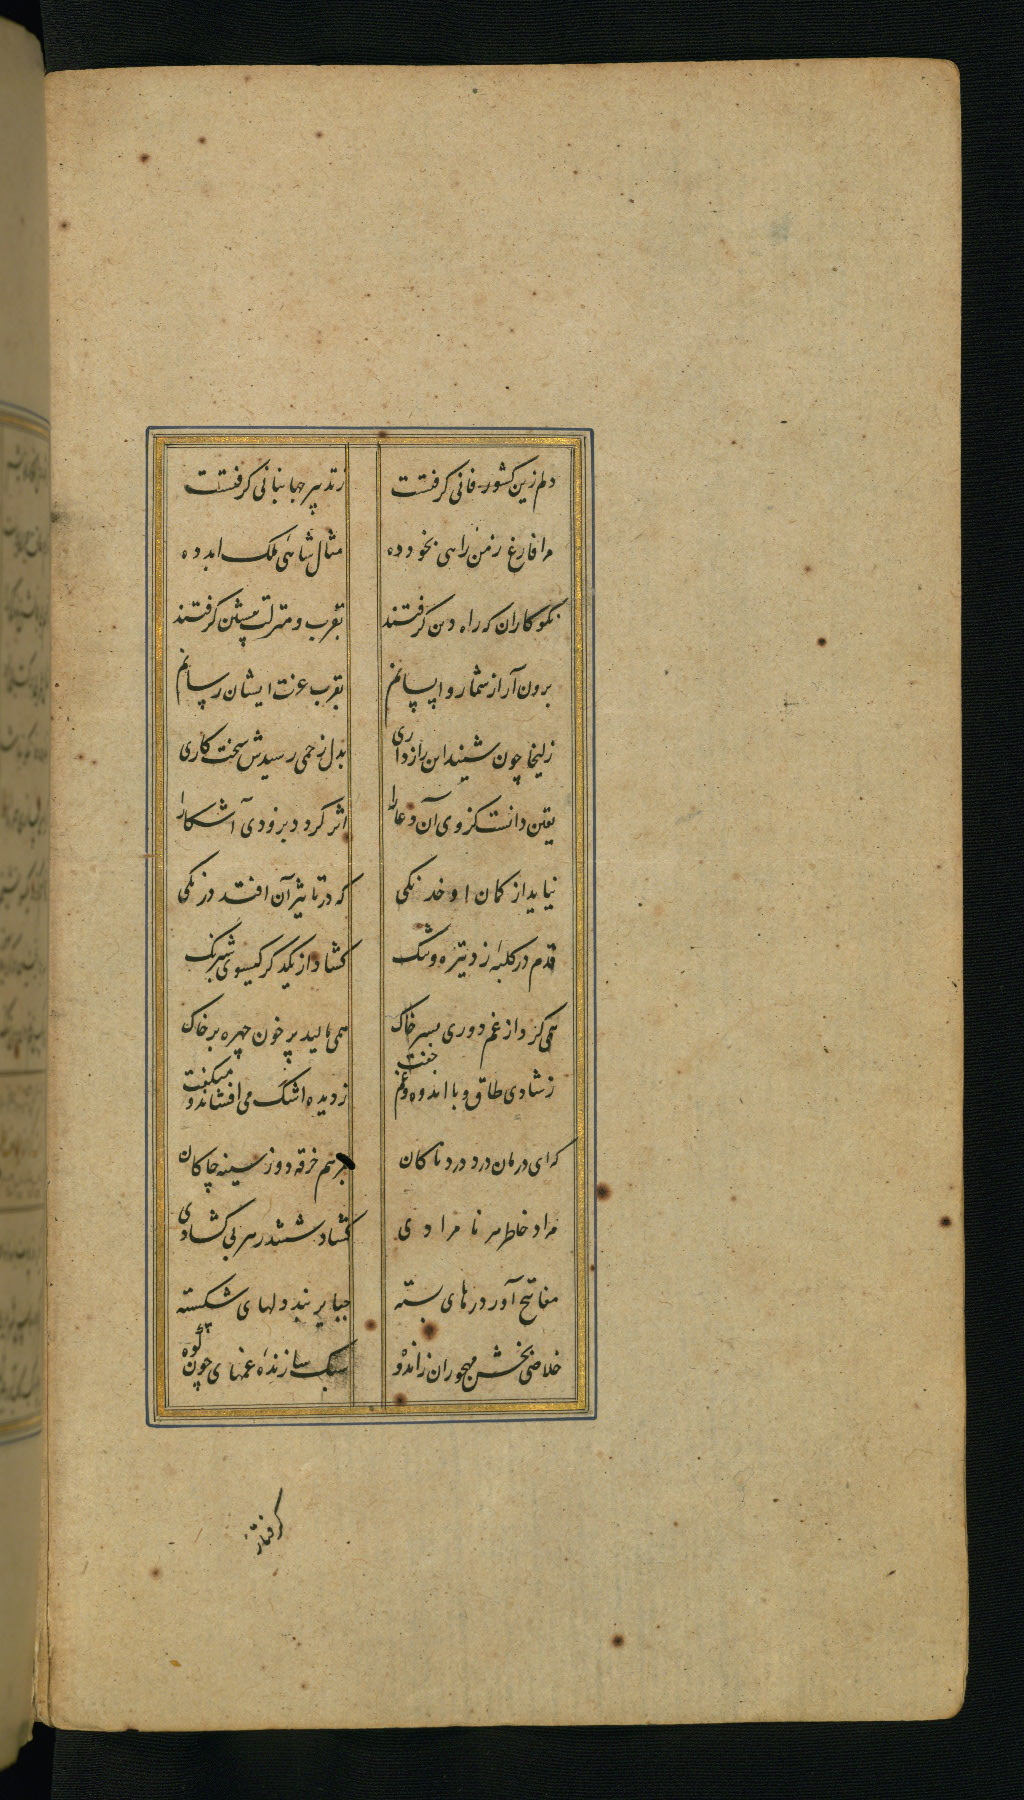 دلم زین کشور فانی گرفتست زتدبیر جهانبانی گرفتست
مرا فارغ زمن راهی بخود ده مثال شاهی ملک ابد ده
نکوکاران که راه دین گرفتند بقرب و منزلت پیشی گرفتند
برون آر از شمار واپسانم بقرب عزت ایشان رسانم
زلیخا چون شنید این رازداری بدل زخمی رسیدش سخت کاری
یقین دانست کز وی آن دعا را اثر گردد بزودی آشکارا
نیاید از کمان او خدنگی که در تاثیر آن افتد درنگی
قدم در کلبهٔ زد تیره و تنگ گشاد از یکدگر گیسوی شبرنگ
همی کرد از غم دوری بسر خاک همی مالید پر خون چهره بر خاک
زشادی طاق و با اندوه و غم جفت زدیده اشک می افشاند و میگفت
که ای درمان درد دردناکان مرهم خرقه دوز سینه چاکان
مراد خاطر هر نامرادی گشاد ششدر هر بی گشادی
مفاتیح آور درهای بسته جبایر بند دلهای شکسته
خلاصی بخش مهجوران زاندوه سبک سازندهٔ غمهای چون کوه
گرفتار